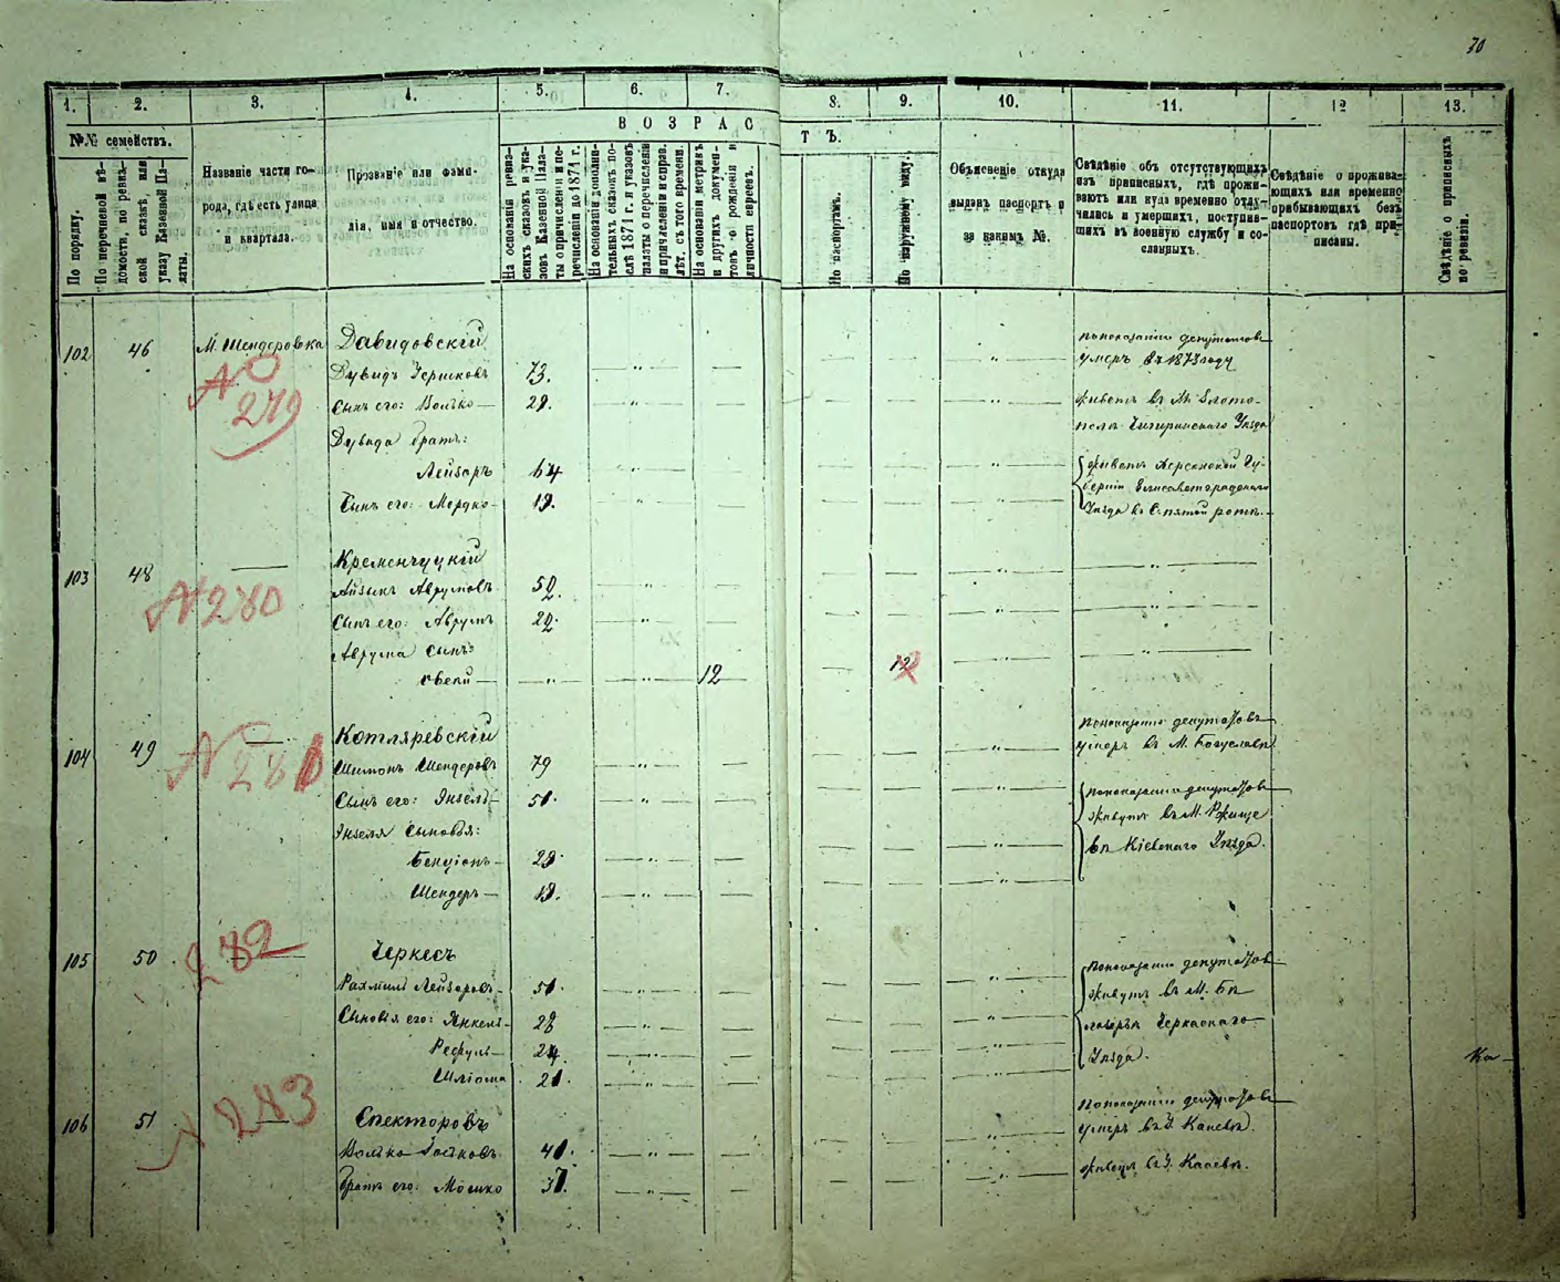 70
1. 2. 3. 4. 5. 6. 7. 8. 9. 10. 11. 12 13.
№№ семействъ.
По порядку.
По перечневой вѣдомости, по ревизской сказкѣ, или указу Казенной Палаты.
Названіе части города, гдѣ есть улица и квартала.
Прозваніе или фамилія, имя и отчество.
ВОЗРАСТЪ.
На основаніи ревизскихъ сказокъ и указовъ Казенной Палаты о причисленіи и перечисленіи до 1871 г.
На основаніи дополнительныхъ сказокъ послѣ 1871 г. и указовъ палаты о перечисленіи и причисленіи и исправ. лѣт. съ того времени.
На основаніи метрикъ и другихъ документовъ о рожденіи и личности евреевъ.
По паспортамъ.
По наружному виду.
Объясненіе откуда выданъ паспортъ и за какимъ №.
Свѣдѣніе объ отсутствующихъ изъ приписныхъ, гдѣ проживаютъ или куда временно отлучились и умершихъ, поступившихъ въ военную службу и сосланныхъ.
Свѣдѣніе о проживающихъ или временно прибывающихъ безъ паспортовъ гдѣ приписаны.
Свѣдѣніе о приписныхъ по ревизіи.
102 46 М. Шендеровка Давидовскій
№ 279
Дувидъ Гершковъ 73. умеръ въ 1873 году
Сынъ его: Волько 29. живетъ въ М. Злато-
Дувида братъ: полѣ Чигиринскаго Уѣзда
Лейзоръ 64 живетъ Херсонской Гу-
берніи Елисаветградскаго
Сынъ его: Мордко 19. Уѣзда
103 48 Кременчуцкій
№ 280
Айзыкъ Аврумовъ 52.
Сынъ его: Аврумъ 22.
Аврума сынъ:
12 12
104 49 Котляревскій показанію депутатовъ
№ 281
Шимонъ Шендеровъ 79 умеръ въ М. Богуславѣ
Сынъ его: Янкель 51. депутатов
Сыновья: живутъ въ М. Ржище
Бенціонъ 29. вѣ Кіевскаго Уѣзда.
Шендеръ 19.
105 50 282 Черкесъ показанію депутатов
Рахмилъ Лейзоровъ 51. живутъ въ М. Бѣ
Сыновья его: Янкель 28 лозерьѣ Черкаскаго
Рефулъ 24. Уѣзда.
Ка
Шліома 21.
106 51 № 283 Спекторовъ показанію депутатов
Волько 41. умеръ въ Г. Каневѣ.
Братъ его: Мошко 37. живетъ въ Г. Каневѣ.